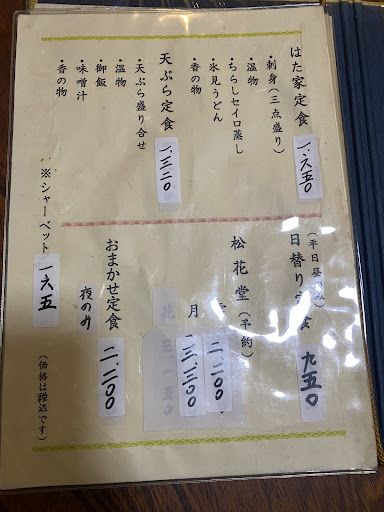 はた家定食 一、六五〇
・刺身（三点盛り）
・温物
・ちらしセイロ蒸し
・氷見うどん
・香の物
天ぷら定食 一、三二〇
・天ぷら盛り合せ
・温物
・御飯
・味噌汁
・香の物
※シャーベット 一六五
（平日昼のみ）
日替り定食 九五〇
松花堂（予約）
二、二〇〇
月 三、三〇〇
花 三、一五〇
おまかせ定食 二、二〇〇
夜のみ
（価格は税込です）